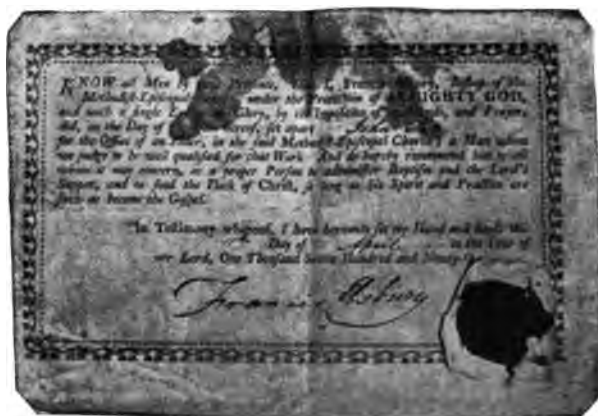 KNOW all Men by these Presents, That I, Francis Asbury, Bishop of the
Methodist Episcopal Church, under the Protection of ALMIGHTY GOD,
and with a single Eye to his Glory, by the Imposition of my Hands, and Prayer,
did, on the Day of the Date hereof, set apart John
for the Office of an Elder, in the said Methodist Episcopal Church; a Man whom
we judge to be well qualified for that Work: And do hereby recommend him to all
whom it may concern, as a proper Person to administer Baptism and the Lord's
Supper, and to feed the Flock of Christ, so long as his Spirit and Practice are
such as become the Gospel.
In Testimony whereof, I have hereunto set my Hand and Seal this
Day of April in the Year of
our Lord, One Thousand Seven Hundred and Ninety
Francis Asbury